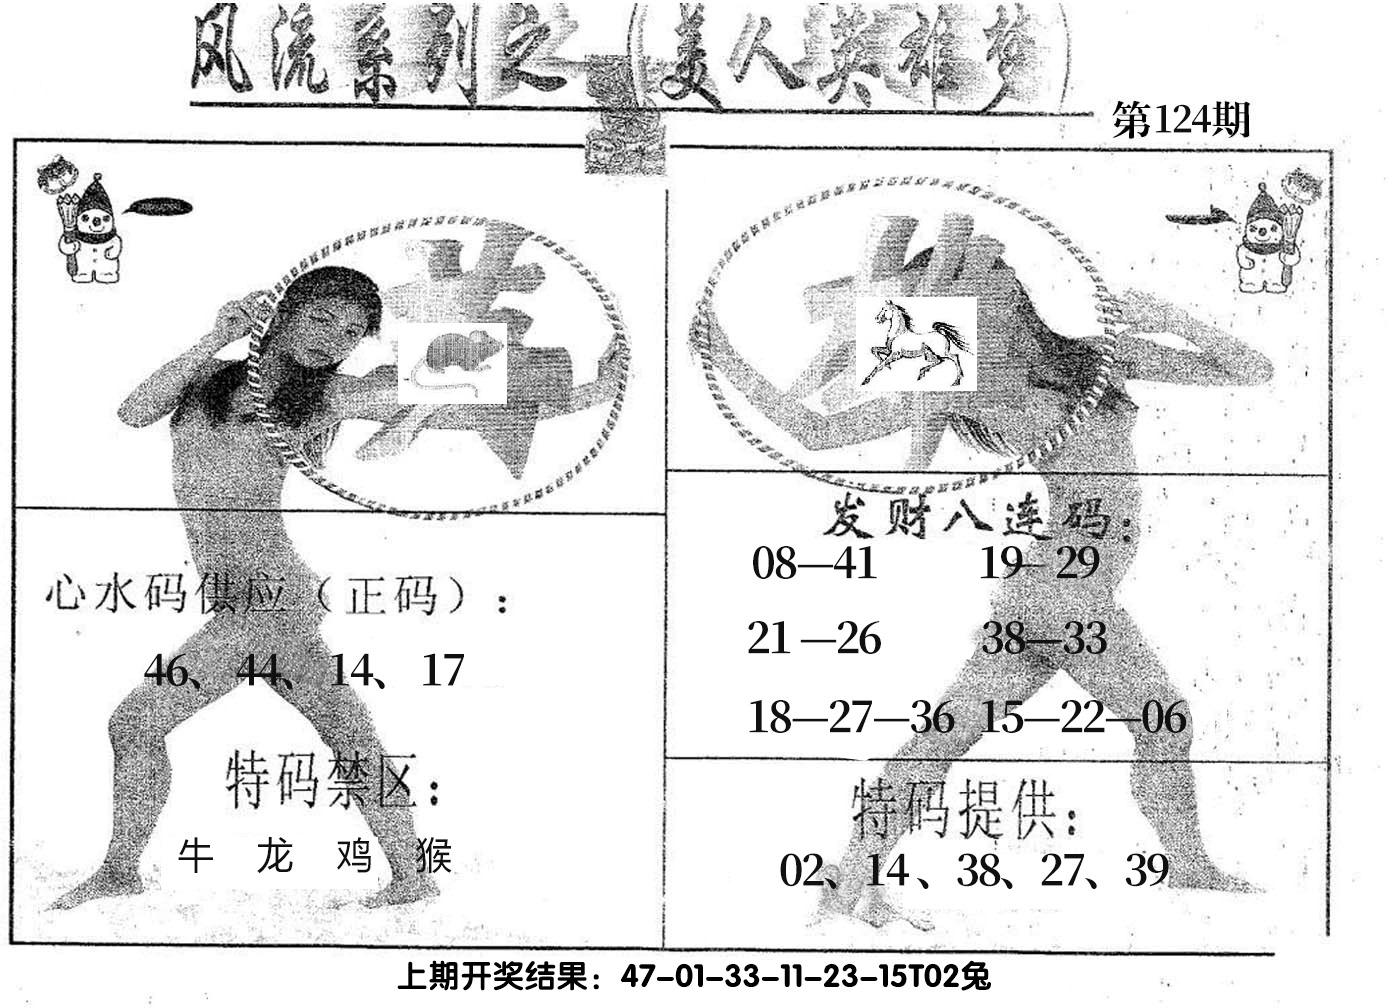 风流系列之(美人英雄梦
第124期
心水码供应（正码）：
46、44、14、17
特码禁区：
牛 龙 鸡 猴
发财八连码：
08—41 19—29
21—26 38—33
18—27—36 15—22—06
特码提供：
02、14、38、27、39
上期开奖结果：47-01-33-11-23-15T02兔